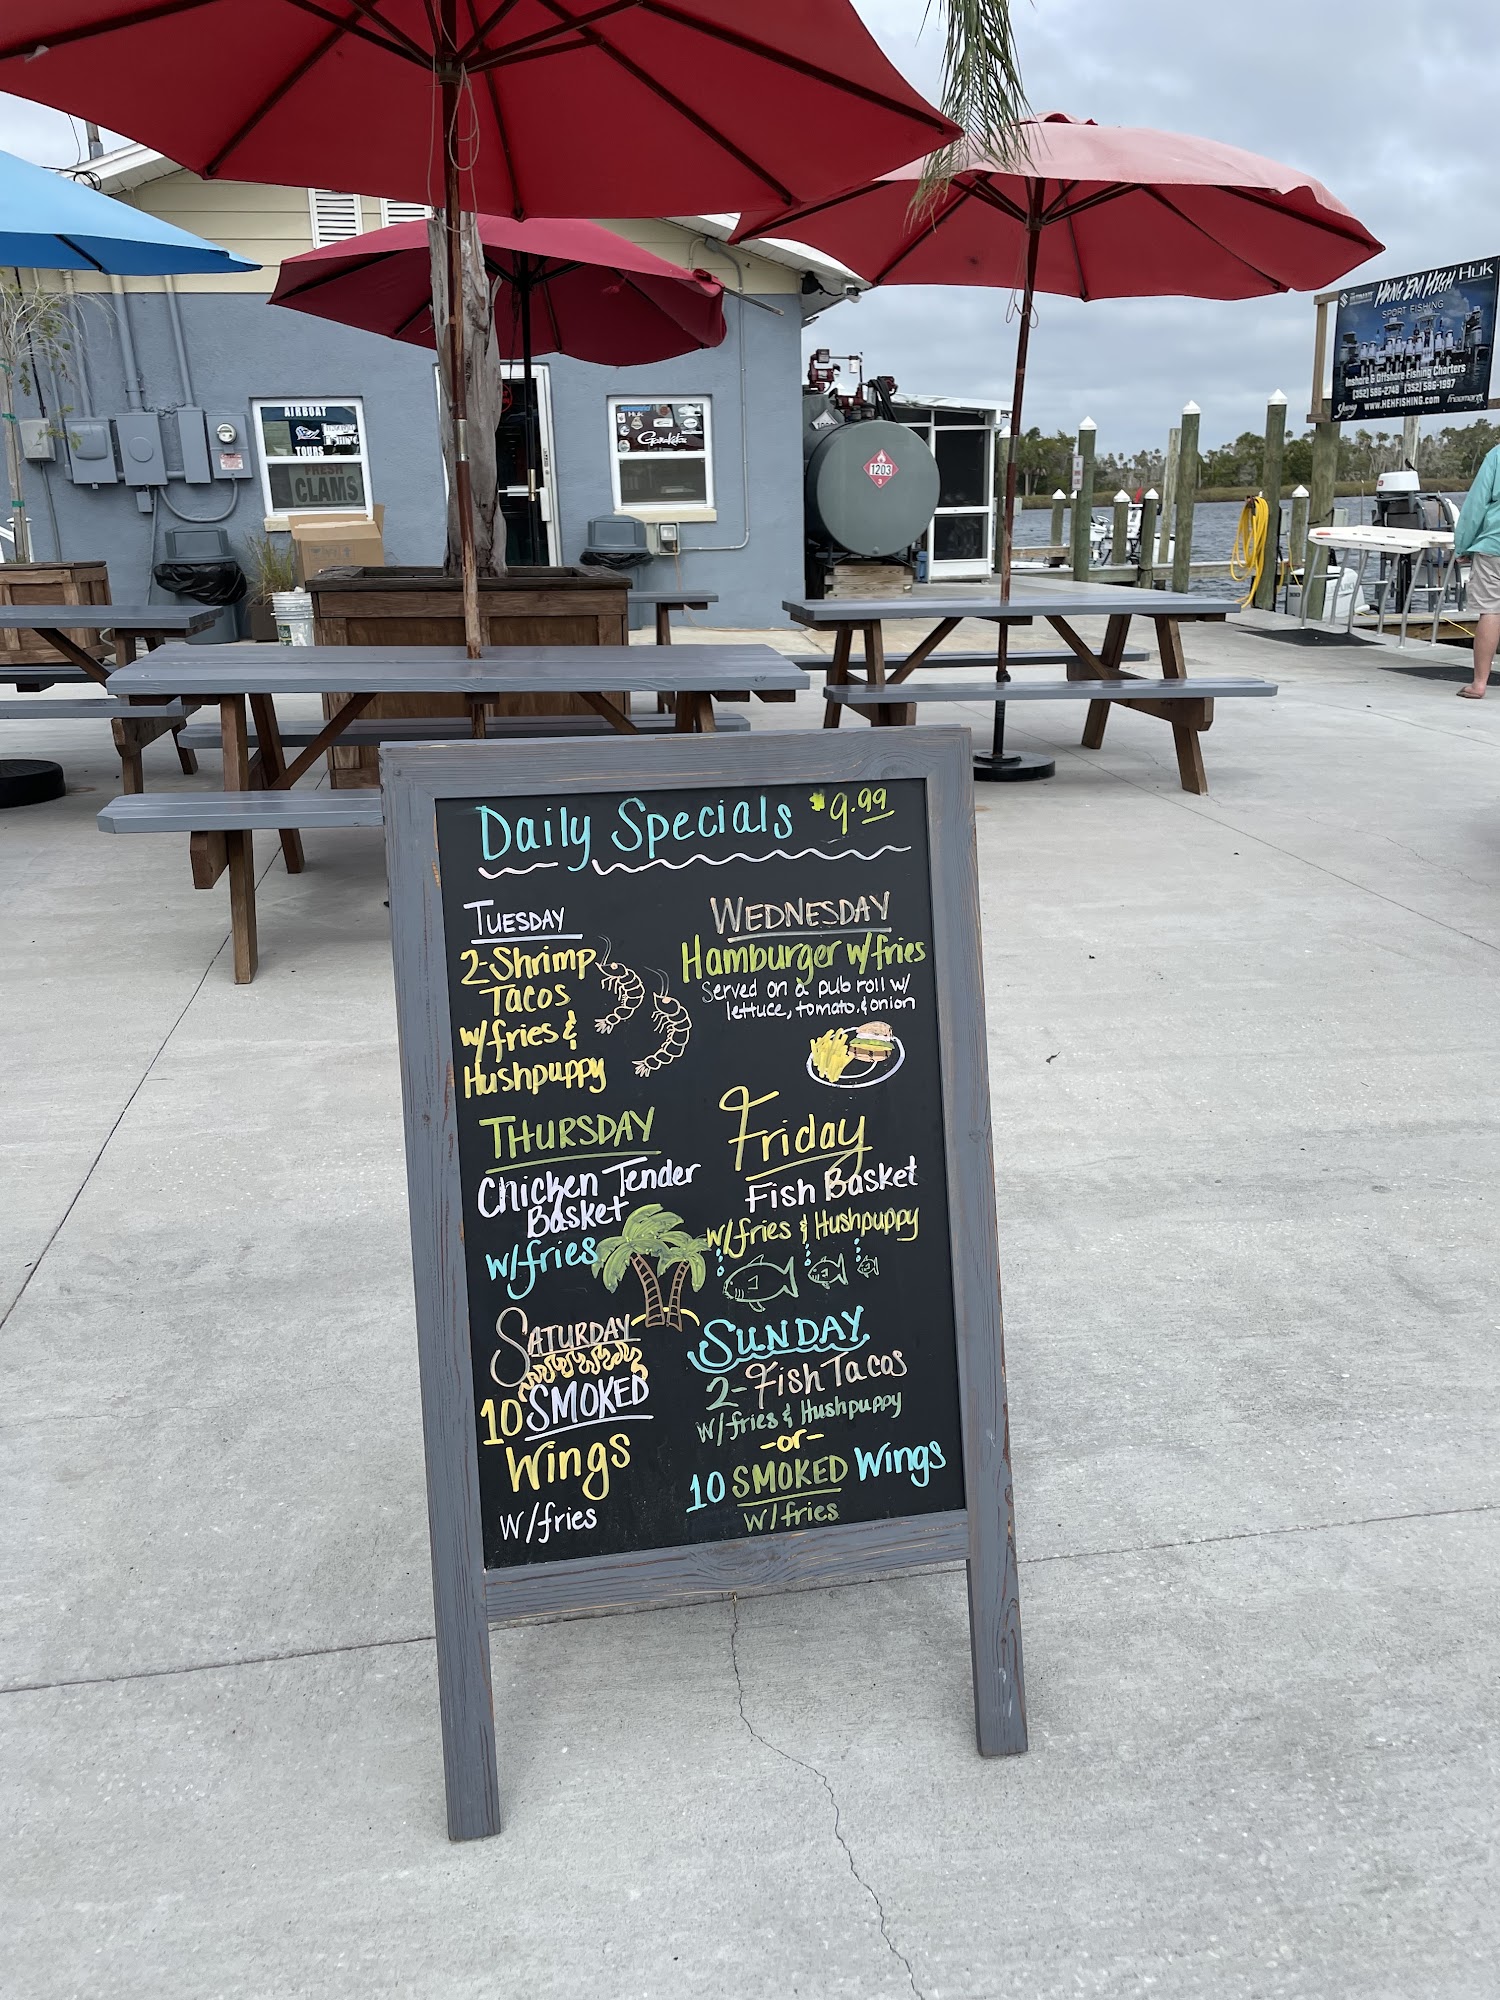 Daily Specials $9.99
TUESDAY
2-Shrimp
Tacos
w/fries &
Hushpuppy
WEDNESDAY
Hamburger w/fries
Served on a pub roll w/
lettuce, tomato, & onion
THURSDAY
Chicken Tender
Basket
w/fries
Friday
Fish Basket
w/fries & Hushpuppy
SATURDAY
10 SMOKED
Wings
w/fries
SUNDAY
2-Fish Tacos
w/fries & Hushpuppy
-or-
10 SMOKED Wings
w/fries
AIRBOAT
TOURS
FRESH
CLAMS
Huk
Gamakatsu
1203
3
HANG 'EM HIGH Huk
SPORT FISHING
Inshore & Offshore Fishing Charters
(352) 586-2748 (352) 586-1997
www.HEHFISHING.com